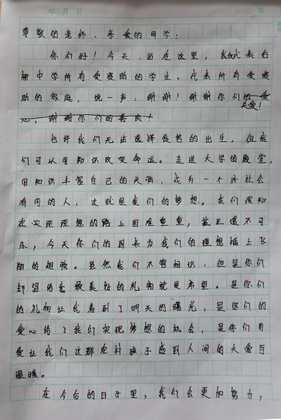 尊敬的老师、亲爱的同学：
你们好！今天，站在这里，我代表
中学所有受资助的学生，代表所有受资
助的家庭，说一声：谢谢！谢谢你们的
关爱！
心，谢谢你们的善良！
也许我们无法选择自己的出生，但我
们可以用知识改变命运。走进大学的殿堂，
用知识丰富自己的头脑，成为一个对社会
有用的人，这就是我们的梦想。我们
在实现理想的路上困难重重，甚至遥不可
及，今天你们的到来为我们的理想插上飞
翔的翅膀。虽然我们不曾相识，但是你们
却留给我最美好的礼物就是希望。是你们
的礼物让我看到了明天的曙光，是你们的
爱心给了我们实现梦想的机会，是你们用
爱让我们这群农村孩子感到人间的大爱与
温暖。
在今后的日子里，我们会更加努力，